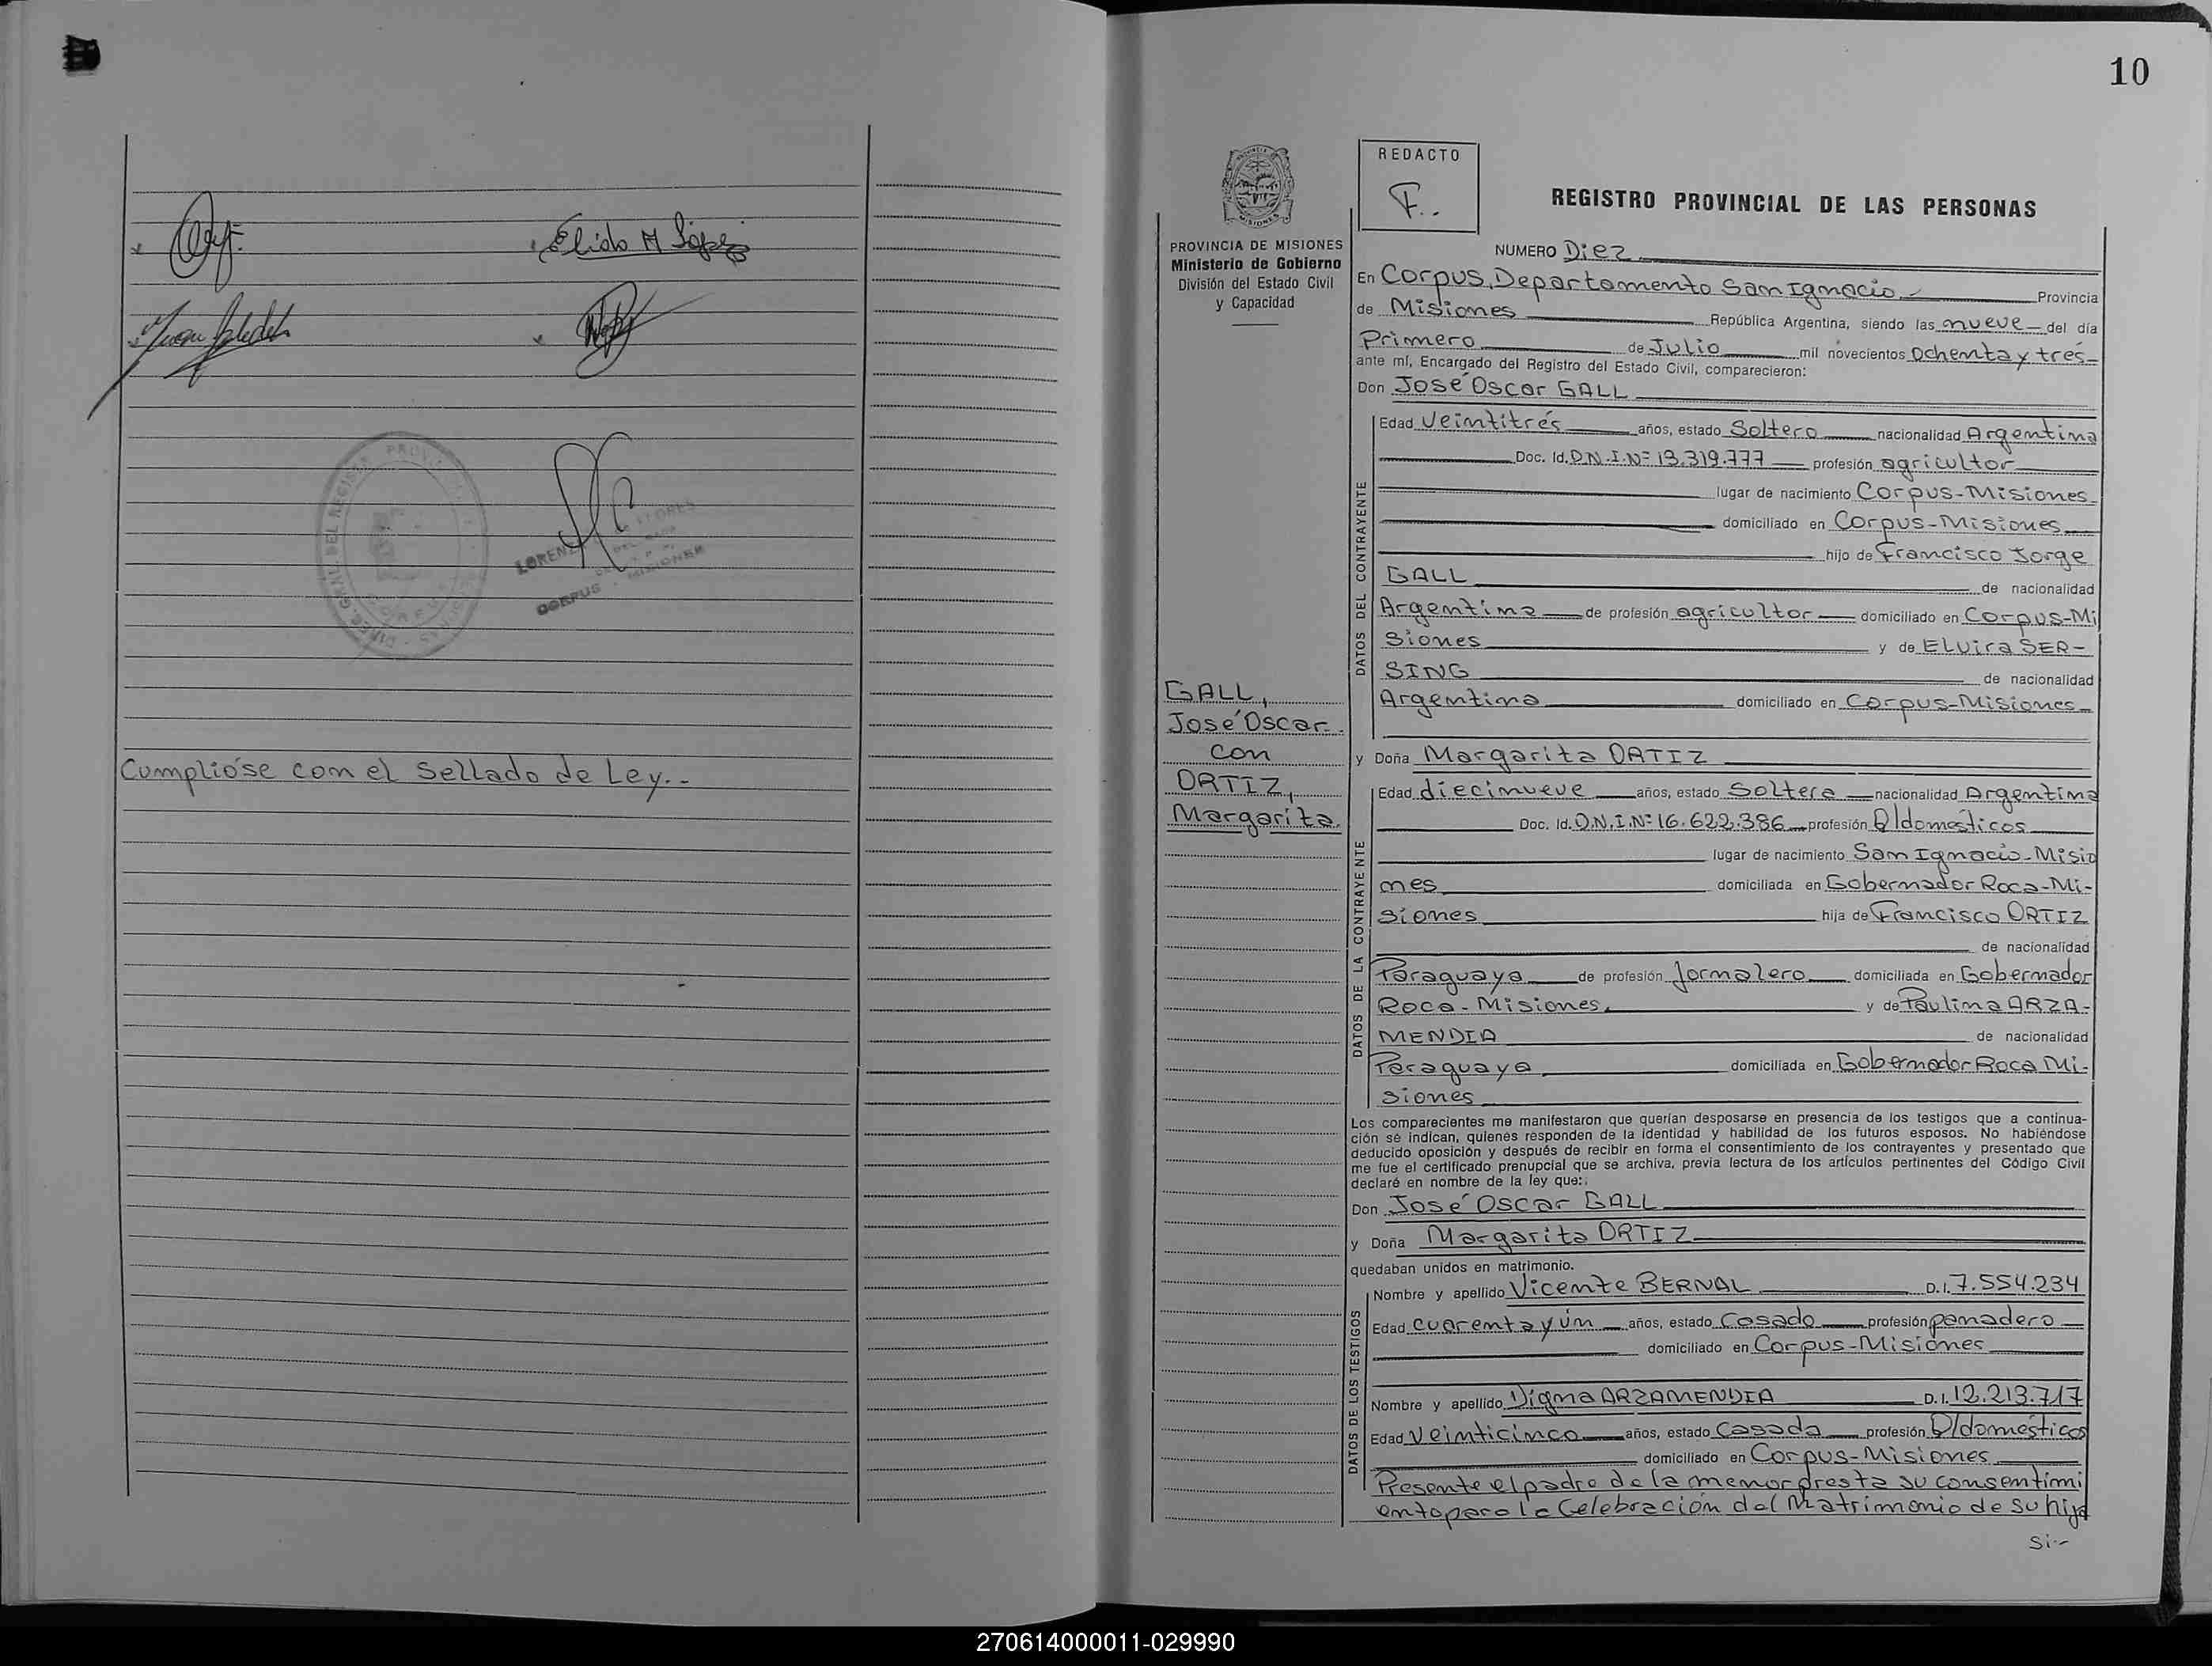 Elido M López
LORENZ FLORES
CORPUS - MISIONES
Cumplióse con el Sellado de Ley.-
10
PROVINCIA DE MISIONES
Ministerio de Gobierno
División del Estado Civil
y Capacidad
GALL,
José Oscar
con
ORTIZ,
Margarita
REDACTO
F..
REGISTRO PROVINCIAL DE LAS PERSONAS
NUMERO Diez
En Corpus, Departamento San Ignacio Provincia
de Misiones República Argentina, siendo las nueve del día
Primero de Julio mil novecientos Ochenta y tres
ante mí, Encargado del Registro del Estado Civil, comparecieron:
Don José Oscar GALL
DATOS DEL CONTRAYENTE
Edad Veintitrés años, estado Soltero nacionalidad Argentina
Doc. Id. D.N.I.Nº 13.319.777 profesión agricultor
lugar de nacimiento Corpus-Misiones
domiciliado en Corpus-Misiones
hijo de Francisco Jorge
GALL de nacionalidad
Argentina de profesión agricultor domiciliado en Corpus-Mi
siones y de Elvira SER-
SING de nacionalidad
Argentina domiciliado en Corpus-Misiones
y Doña Margarita ORTIZ
DATOS DE LA CONTRAYENTE
Edad diecinueve años, estado Soltera nacionalidad Argentina
Doc. Id. D.N.I.Nº 16.622.386 profesión Q/domésticos
lugar de nacimiento San Ignacio-Misio
nes domiciliada en Gobernador Roca-Mi-
siones hija de Francisco ORTIZ
de nacionalidad
Paraguaya de profesión Jornalero domiciliada en Gobernador
Roca-Misiones y de Paulina ARZA-
MENDIA de nacionalidad
Paraguaya domiciliada en Gobernador Roca Mi-
siones
Los comparecientes me manifestaron que querían desposarse en presencia de los testigos que a continua-
ción se indican, quienes responden de la identidad y habilidad de los futuros esposos. No habiéndose
deducido oposición y después de recibir en forma el consentimiento de los contrayentes y presentado que
me fue el certificado prenupcial que se archiva, previa lectura de los artículos pertinentes del Código Civil
declaré en nombre de la ley que:
Don José Oscar GALL
y Doña Margarita ORTIZ
quedaban unidos en matrimonio.
DATOS DE LOS TESTIGOS
Nombre y apellido Vicente BERNAL D.I. 7.554.234
Edad cuarenta y un años, estado Casado profesión panadero
domiciliado en Corpus-Misiones
Nombre y apellido Digna ARZAMENDIA D.I. 12.213.717
Edad Veinticinco años, estado Casada profesión Q/domésticos
domiciliado en Corpus-Misiones
Presente el padre de la menor presta su consentimi
ento para la Celebración del Matrimonio de su hija
si-
270614000011-029990